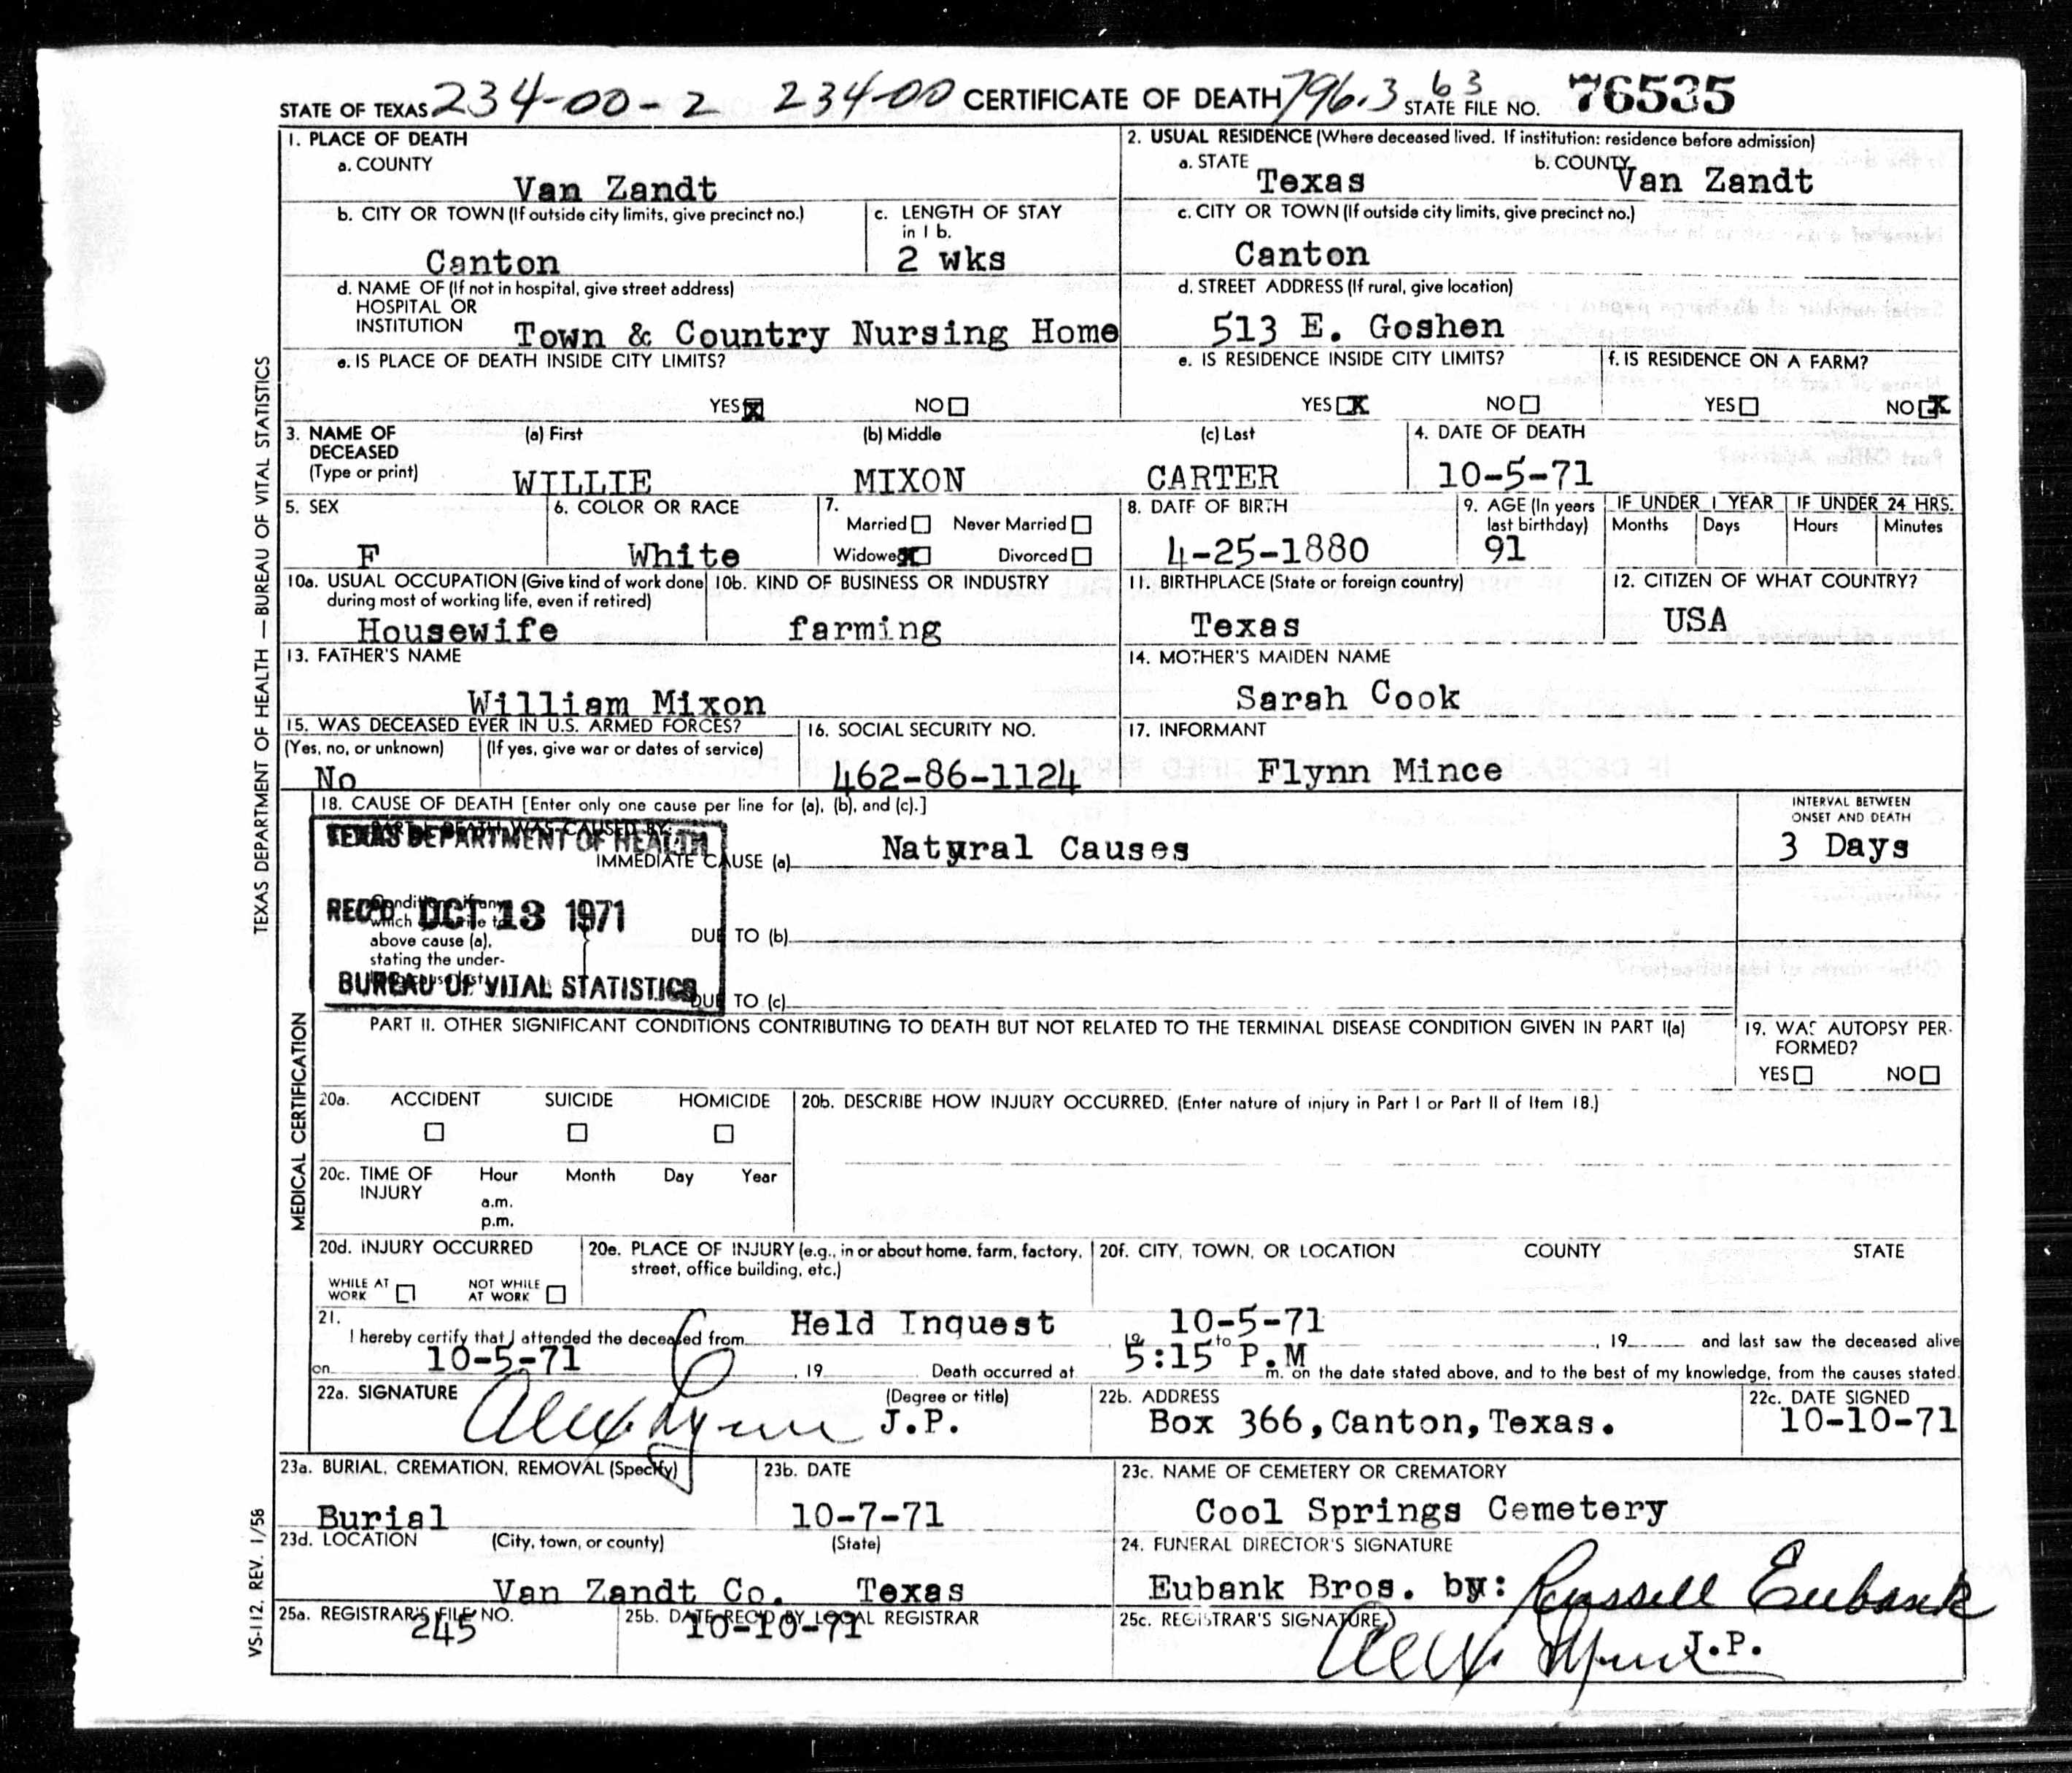 STATE OF TEXAS 234-00-2 234-00 CERTIFICATE OF DEATH 796.3 63 STATE FILE NO. 76535
1. PLACE OF DEATH
a. COUNTY
Van Zandt
2. USUAL RESIDENCE (Where deceased lived. If institution: residence before admission)
a. STATE Texas b. COUNTY Van Zandt
b. CITY OR TOWN (If outside city limits, give precinct no.)
Canton
c. LENGTH OF STAY in 1 b.
2 wks
c. CITY OR TOWN (If outside city limits, give precinct no.)
Canton
d. NAME OF (If not in hospital, give street address)
HOSPITAL OR
INSTITUTION Town & Country Nursing Home
d. STREET ADDRESS (If rural, give location)
513 E. Goshen
e. IS PLACE OF DEATH INSIDE CITY LIMITS?
YES X NO
e. IS RESIDENCE INSIDE CITY LIMITS?
YES X NO
f. IS RESIDENCE ON A FARM?
YES NO X
3. NAME OF DECEASED (Type or print)
(a) First (b) Middle (c) Last
WILLIE MIXON CARTER
4. DATE OF DEATH
10-5-71
5. SEX
F
6. COLOR OR RACE
White
7.
Married Never Married
Widowed X Divorced
8. DATE OF BIRTH
4-25-1880
9. AGE (In years last birthday)
91
IF UNDER 1 YEAR IF UNDER 24 HRS.
Months Days Hours Minutes
10a. USUAL OCCUPATION (Give kind of work done during most of working life, even if retired)
Housewife
10b. KIND OF BUSINESS OR INDUSTRY
farming
11. BIRTHPLACE (State or foreign country)
Texas
12. CITIZEN OF WHAT COUNTRY?
USA
13. FATHER'S NAME
William Mixon
14. MOTHER'S MAIDEN NAME
Sarah Cook
15. WAS DECEASED EVER IN U.S. ARMED FORCES?
(Yes, no, or unknown) (If yes, give war or dates of service)
No
16. SOCIAL SECURITY NO.
462-86-1124
17. INFORMANT
Flynn Mince
18. CAUSE OF DEATH [Enter only one cause per line for (a), (b), and (c).]
INTERVAL BETWEEN
ONSET AND DEATH
PART I. DEATH WAS CAUSED BY:
IMMEDIATE CAUSE (a) Natural Causes 3 Days
TEXAS DEPARTMENT OF HEALTH
REC'D OCT 13 1971
BUREAU OF VITAL STATISTICS
Conditions, if any,
which
above cause (a),
stating the under-
DUE TO (b)
DUE TO (c)
PART II. OTHER SIGNIFICANT CONDITIONS CONTRIBUTING TO DEATH BUT NOT RELATED TO THE TERMINAL DISEASE CONDITION GIVEN IN PART I(a)
19. WAS AUTOPSY PER-
FORMED?
YES NO
20a. ACCIDENT SUICIDE HOMICIDE
20b. DESCRIBE HOW INJURY OCCURRED. (Enter nature of injury in Part I or Part II of Item 18.)
20c. TIME OF INJURY Hour Month Day Year
a.m.
p.m.
20d. INJURY OCCURRED
WHILE AT WORK NOT WHILE AT WORK
20e. PLACE OF INJURY (e.g., in or about home, farm, factory, street, office building, etc.)
20f. CITY, TOWN, OR LOCATION COUNTY STATE
21.
I hereby certify that I attended the deceased from Held Inquest 10-5-71, 19 to , 19 and last saw the deceased alive
on 10-5-71, 19 Death occurred at 5:15 P.M m. on the date stated above, and to the best of my knowledge, from the causes stated.
22a. SIGNATURE (Degree or title)
J.P.
22b. ADDRESS
Box 366, Canton, Texas.
22c. DATE SIGNED
10-10-71
23a. BURIAL, CREMATION, REMOVAL (Specify)
Burial
23b. DATE
10-7-71
23c. NAME OF CEMETERY OR CREMATORY
Cool Springs Cemetery
23d. LOCATION (City, town, or county) (State)
Van Zandt Co. Texas
24. FUNERAL DIRECTOR'S SIGNATURE
Eubank Bros. by: Russell Eubank
25a. REGISTRAR'S FILE NO.
245
25b. DATE REC'D BY LOCAL REGISTRAR
10-10-71
25c. REGISTRAR'S SIGNATURE
J.P.
TEXAS DEPARTMENT OF HEALTH — BUREAU OF VITAL STATISTICS
MEDICAL CERTIFICATION
VS-112, REV. 1/58